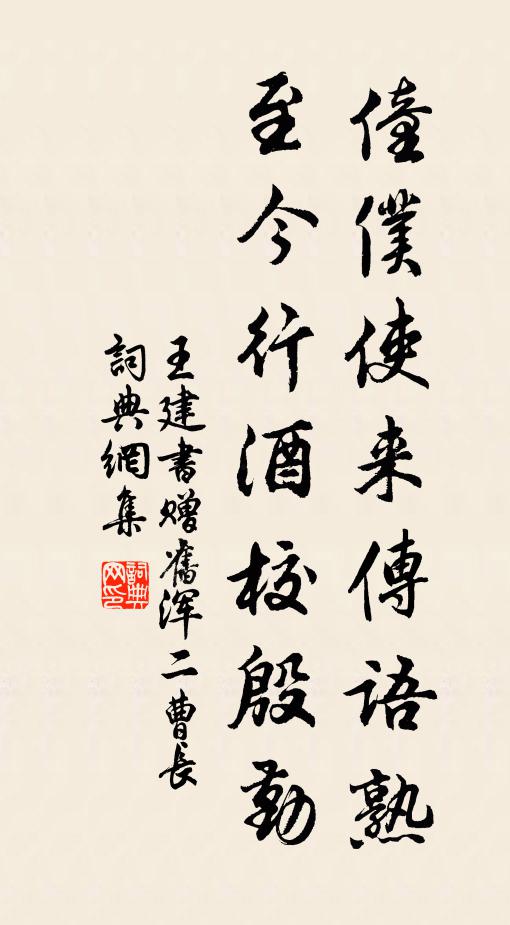 僮僕使来傳語熟
至今行酒校殷勤
王建書赠舊浑二曹長
詞典網集
詞典网印